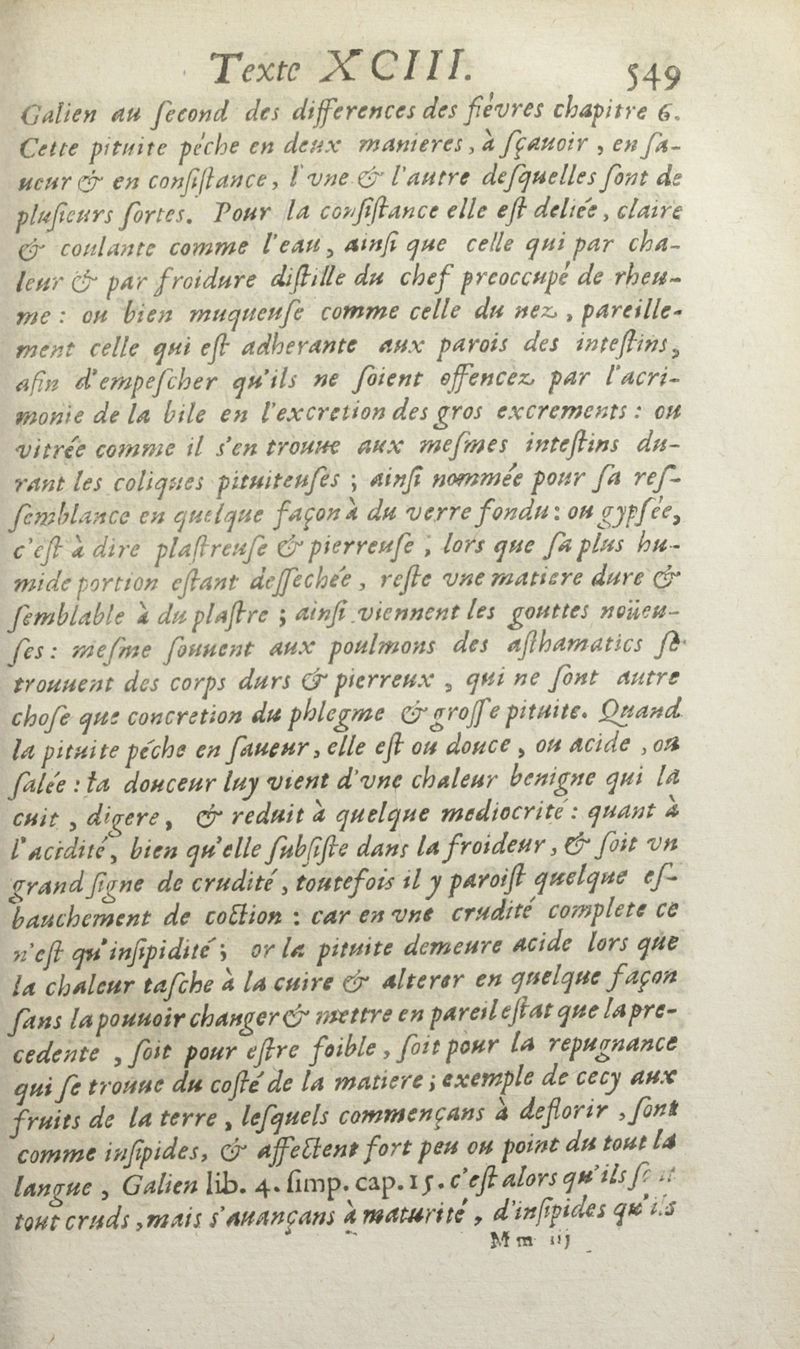 Texte XCIII. 549
Galien au ſecond des differences des fiévres chapitre 6.
Cette pituite péche en deux manieres, à ſçauoir, en ſa-
ueur & en conſiſtance, l'vne & l'autre deſquelles ſont de
pluſieurs ſortes. Pour la conſiſtance elle eſt deliée, claire
& coulante comme l'eau, ainſi que celle qui par cha-
leur & par froidure diſtille du chef preoccupé de rheu-
me : ou bien muqueuſe comme celle du nez, pareille-
ment celle qui eſt adherante aux parois des inteſtins,
afin d'empeſcher qu'ils ne ſoient offencez par l'acri-
monie de la bile en l'excretion des gros excrements : ou
vitrée comme il s'en trouue aux meſmes inteſtins du-
rant les coliques pituiteuſes ; ainſi nommée pour ſa reſ-
ſemblance en quelque façon à du verre fondu : ou gypſée,
c'eſt à dire plaſtreuſe & pierreuſe, lors que ſa plus hu-
mide portion eſtant deſſechée, reſte vne matiere dure &
ſemblable à du plaſtre ; ainſi viennent les gouttes noüeu-
ſes : meſme ſouuent aux poulmons des aſthamatics ſe
trouuent des corps durs & pierreux, qui ne ſont autre
choſe que concretion du phlegme & groſſe pituite. Quand
la pituite péche en ſaueur, elle eſt ou douce, ou acide, ou
ſalée : la douceur luy vient d'vne chaleur benigne qui la
cuit, digere, & reduit à quelque mediocrité : quant à
l'acidité, bien qu'elle ſubſiſte dans la froideur, & ſoit vn
grand ſigne de crudité, toutefois il y paroiſt quelque eſ-
bauchement de coction : car en vne crudité complete ce
n'eſt qu'inſipidité ; or la pituite demeure acide lors que
la chaleur taſche à la cuire & alterer en quelque façon
ſans la pouuoir changer & mettre en pareil eſtat que la pre-
cedente, ſoit pour eſtre foible, ſoit pour la repugnance
qui ſe trouue du coſté de la matiere ; exemple de cecy aux
fruits de la terre, leſquels commençans à deflorir, ſont
comme inſipides, & affectent fort peu ou point du tout la
langue, Galien lib. 4. ſimp. cap. 15. c'eſt alors qu'ils ſont
tout cruds, mais s'auançans à maturité, d'inſipides qu'ils
Mm iij